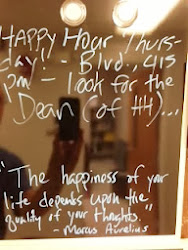 HAPPY HOUR THURS-
day! - Blvd., 415
pm - look for the
Dean (of HH)...
"The happiness of your
life depends upon the
quality of your thoughts."
- Marcus Aurelius